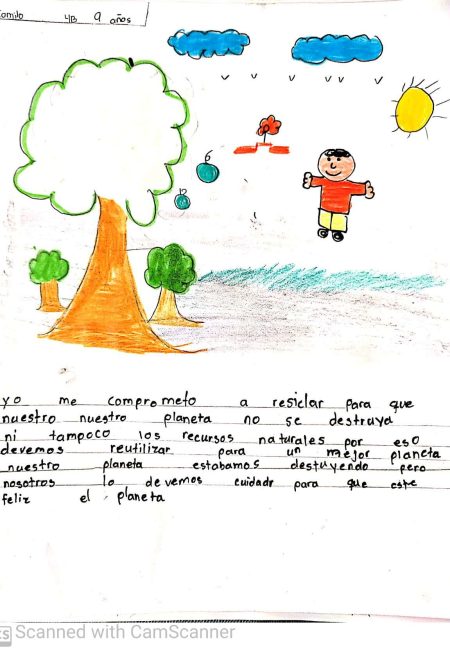 Camilo 4B 9 años
6
12
yo me comprometo a resiclar para que
nuestro nuestro planeta no se destruya
ni tampoco los recursos naturales por eso
devemos reutilizar para un mejor planeta
nuestro planeta estabamos destuyendo pero
nosotros lo devemos cuidadr para que este
feliz el planeta
CS Scanned with CamScanner